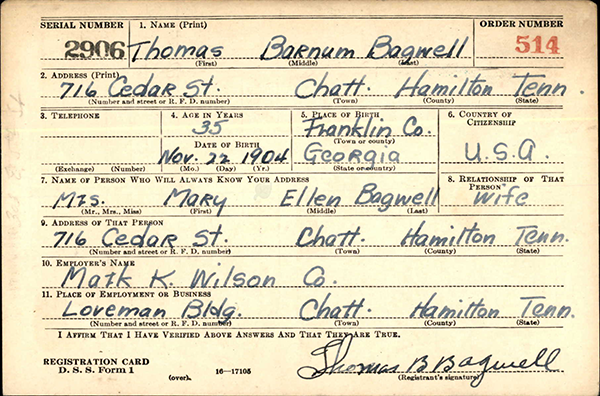 SERIAL NUMBER 1. NAME (Print) ORDER NUMBER
2906 Thomas Barnum Bagwell 514
(First) (Middle) (Last)
2. ADDRESS (Print)
716 Cedar St. Chatt. Hamilton Tenn.
(Number and street or R. F. D. number) (Town) (County) (State)
3. TELEPHONE 4. AGE IN YEARS 5. PLACE OF BIRTH 6. COUNTRY OF CITIZENSHIP
35 Franklin Co.
(Town or county)
DATE OF BIRTH
Nov. 22 1904 Georgia U.S.A.
(Exchange) (Number) (Mo.) (Day) (Yr.) (State or country)
7. NAME OF PERSON WHO WILL ALWAYS KNOW YOUR ADDRESS 8. RELATIONSHIP OF THAT PERSON
Mrs. Mary Ellen Bagwell Wife
(Mr., Mrs., Miss) (First) (Middle) (Last)
9. ADDRESS OF THAT PERSON
716 Cedar St. Chatt. Hamilton Tenn.
(Number and street or R. F. D. number) (Town) (County) (State)
10. EMPLOYER'S NAME
Mark K. Wilson Co.
11. PLACE OF EMPLOYMENT OR BUSINESS
Loveman Bldg. Chatt. Hamilton Tenn.
(Number and street or R. F. D. number) (Town) (County) (State)
I AFFIRM THAT I HAVE VERIFIED ABOVE ANSWERS AND THAT THEY ARE TRUE.
REGISTRATION CARD
D. S. S. Form 1 (over) 16—17105 Thomas B Bagwell
(Registrant's signature)